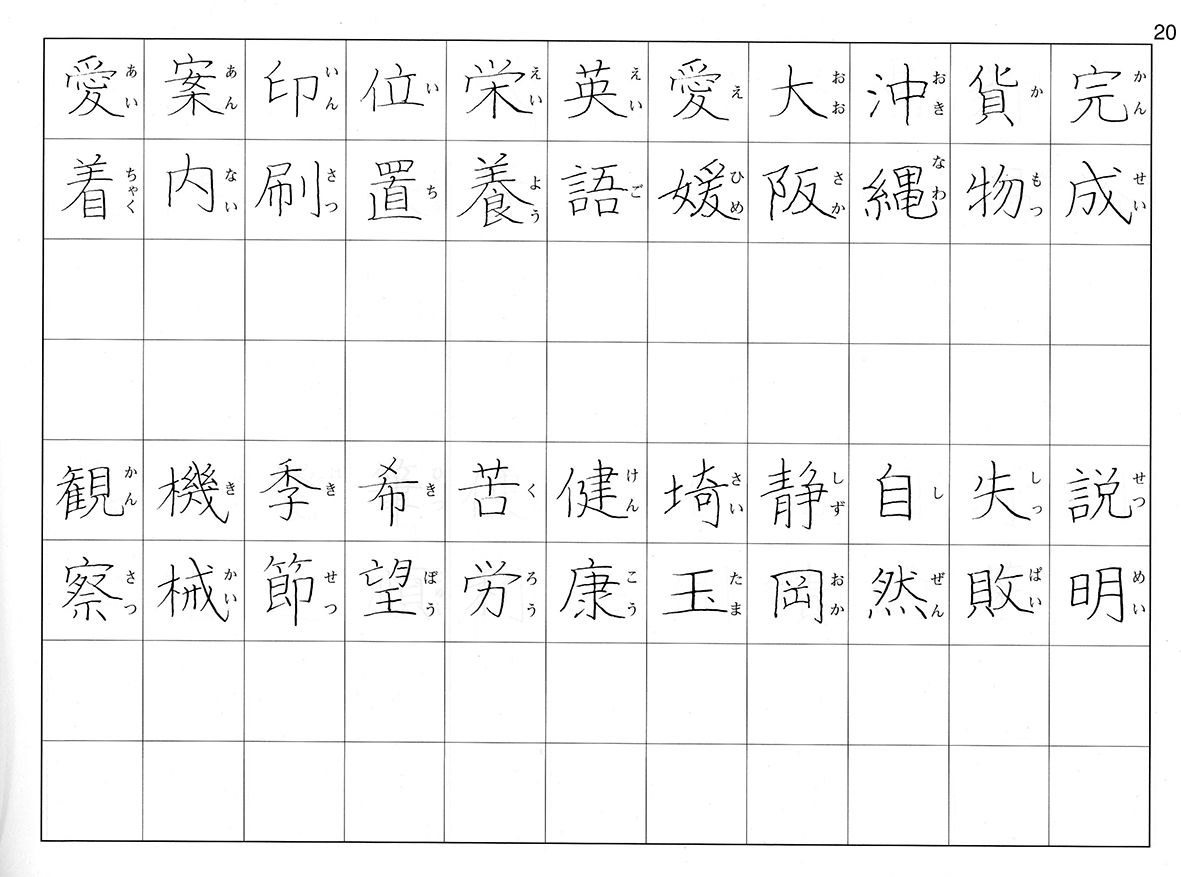 20
愛着 あいちゃく
案内 あんない
印刷 いんさつ
位置 いち
栄養 えいよう
英語 えいご
愛媛 えひめ
大阪 おおさか
沖縄 おきなわ
貨物 かもつ
完成 かんせい
観察 かんさつ
機械 きかい
季節 きせつ
希望 きぼう
苦労 くろう
健康 けんこう
埼玉 さいたま
静岡 しずおか
自然 しぜん
失敗 しっぱい
説明 せつめい